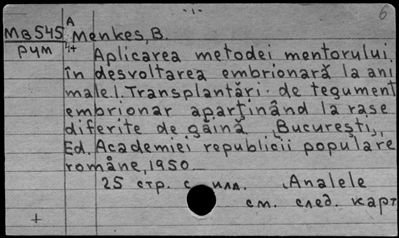 -1-
6
A
Мв545 Menkes, B.
рум 4+ Aplicarea metodei mentorului
în desvoltarea embrionară la ani
male. I. Transplantări de tegument
embrionar aparținând la rase
diferite de găină București,
Ed. Academiei republicii populare
române, 1950
25 стр. с илл. Analele
см. след. карт
+